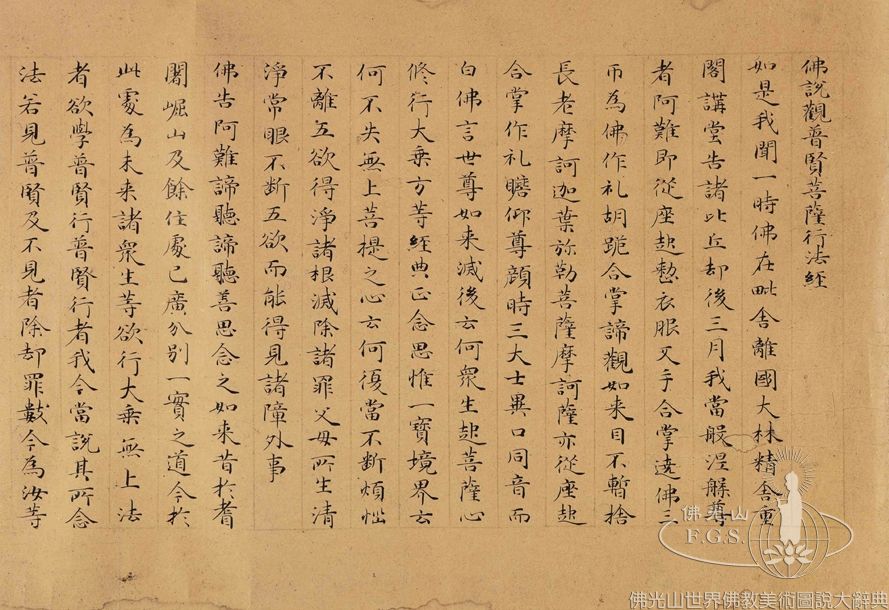 佛說觀普賢菩薩行法經
如是我聞一時佛在毗舍離國大林精舍重
閣講堂告諸比丘却後三月我當般涅槃尊
者阿難即從座起整衣服叉手合掌遶佛三
帀為佛作礼胡跪合掌諦觀如来目不暫捨
長老摩訶迦葉弥勒菩薩摩訶薩亦從座起
合掌作礼瞻仰尊顔時三大士異口同音而
白佛言世尊如来滅後云何衆生起菩薩心
修行大乗方等經典正念思惟一實境界云
何不失無上菩提之心云何復當不断煩惱
不離五欲得淨諸根滅除諸罪父母所生清
淨常眼不断五欲而能得見諸障外事
佛告阿難諦聽諦聽善思念之如来昔於耆
闍崛山及餘住處已廣分别一實之道今於
此處為未来諸衆生等欲行大乗無上法
者欲學普賢行普賢行者我今當說其所念
法若見普賢及不見者除却罪數今為汝等
佛光山
F.G.S.
佛光山世界佛教美術圖說大辭典